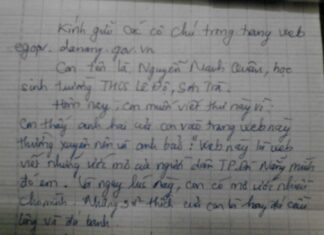 Kính gửi các cô chú trong trang web
egov.danang.gov.vn
Con tên là Nguyễn Mạnh Quân, học
sinh trường THCS Lê Độ, Sơn Trà.
Hôm nay, con muốn viết thư này vì:
Con thấy anh hai của con vào trang web này
thường xuyên nên và anh bảo: "Web này là web
viết những ước mơ của người dân TP. Đà Nẵng mình
đó em. Và ngay lúc này, con có mơ ước nhỏ
của mình. Những sở thích của con là hay đá cầu
lông và đá banh.